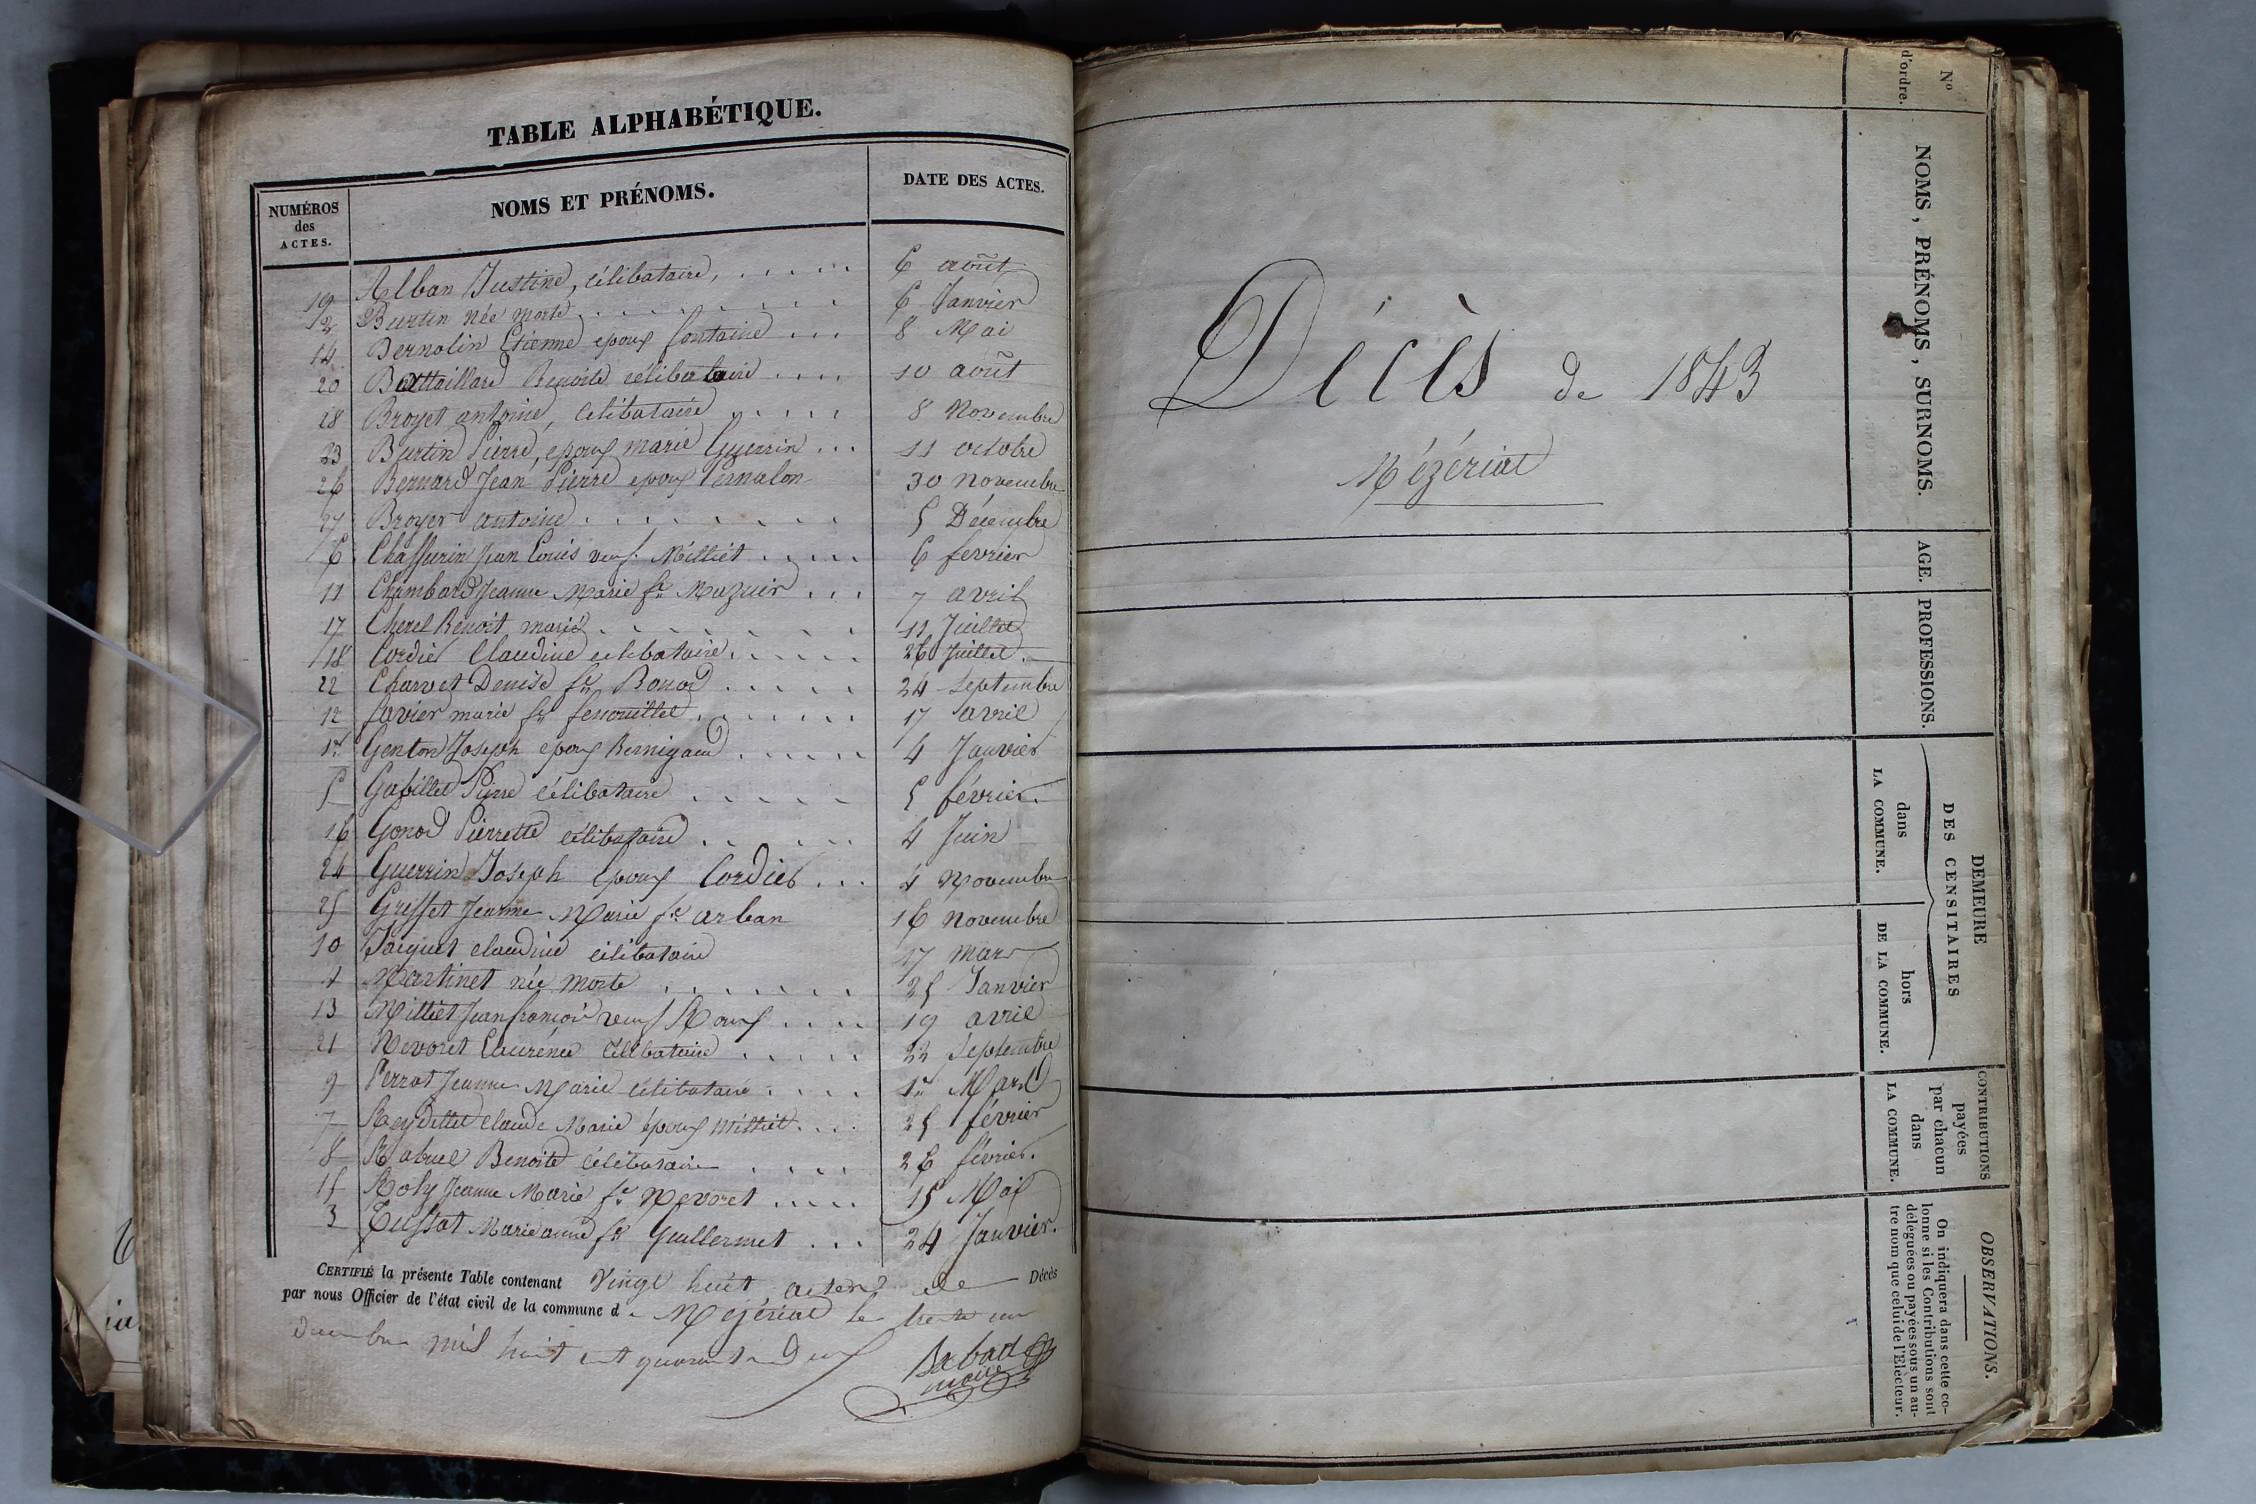 TABLE ALPHABÉTIQUE.
NUMÉROS des ACTES. NOMS ET PRÉNOMS. DATE DES ACTES.
19 Alban Justine, célibataire, 6 août
2 Burtin née morte 6 Janvier
14 Bernolin Etienne epoux fontaine 8 Mai
20 Battaillard Benoite célibataire 10 août
28 Broyet antoine, célibataire 8 Novembre
23 Burtin Pierre, epoux marie Guerrin 11 octobre
26 Bernard Jean Pierre epoux 30 novembre
27 Broyer antoine 5 Décembre
6 Chassurin Jean Louis veuf Milliet 6 fevrier
11 Chambard Jeanne Marie fe Mazuir 7 avril
17 Cherel Benoit marié 11 Juillet
18 Cordier Claudine célibataire 26 Juillet
22 Charvet Denise fe Bonod 24 Septembre
12 favier marie fe fenouillet 17 avril
1er Genton Joseph epoux Bernigaud 4 Janvier
5 Gabillet Pierre célibataire 5 février
16 Gonod Pierrette célibataire 4 Juin
24 Guerrin Joseph Epoux Cordier 4 Novembre
25 Gresset Jeanne Marie fe arban 16 Novembre
10 Jacquet claudine célibataire 27 mars
4 Martinet née morte 25 Janvier
13 Milliet Jean françois veuf Roux 19 avril
21 Nevoret Laurence célibataire 22 Septembre
9 Perrat Jeanne Marie célibataire 1er Mars
7 Reydellet Claude Marie époux Milliet 25 février
8 Rabuel Benoite célibataire 26 février.
15 Roly Jeanne Marie fe Nevoret 15 Mai
3 Tussot Marie anne fe Guillermet 24 Janvier.
CERTIFIÉ la présente Table contenant Vingt huit actes de Décès
par nous Officier de l'état civil de la commune d e Mézériat le trente un
decembre mil huit cent quarante deux
Babad
maire
Décès de 1843
Mézériat
No d'ordre.
NOMS, PRÉNOMS, SURNOMS.
AGE.
PROFESSIONS.
DEMEURE
DES CENSITAIRES
dans
LA COMMUNE.
hors
DE LA COMMUNE.
CONTRIBUTIONS
payées
par chacun
dans
LA COMMUNE.
OBSERVATIONS.
On indiquera dans cette co-
lonne si les Contributions sont
déléguées ou payées sous un au-
tre nom que celui de l'Électeur.